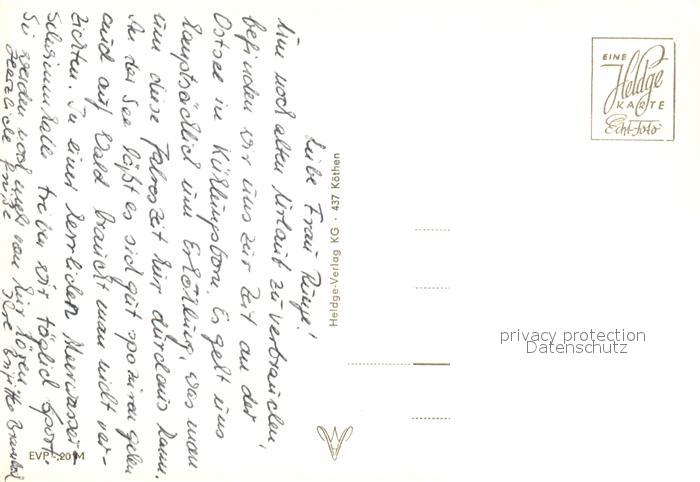 Liebe Frau Runge!
Um noch alten Urlaub zu verbrauchen,
befinden wir uns zur Zeit an der
Ostsee in Kühlungsborn. Es geht uns
hauptsächlich um Erholung, was man
um diese Jahreszeit hier durchaus kann.
An der See läßt es sich gut spazieren gehen
und auf Wald braucht man nicht ver-
zichten. In einer herrlichen Meerwasser-
schwimmhalle treiben wir täglich Sport.
Sie werden noch mehr von hier hören.
Herzliche Grüße Ihre Brigitte
EINE
Heldge
KARTE
Echt-Foto
Heldge-Verlag KG · 437 Köthen
EVP -,20 M
privacy protection
Datenschutz